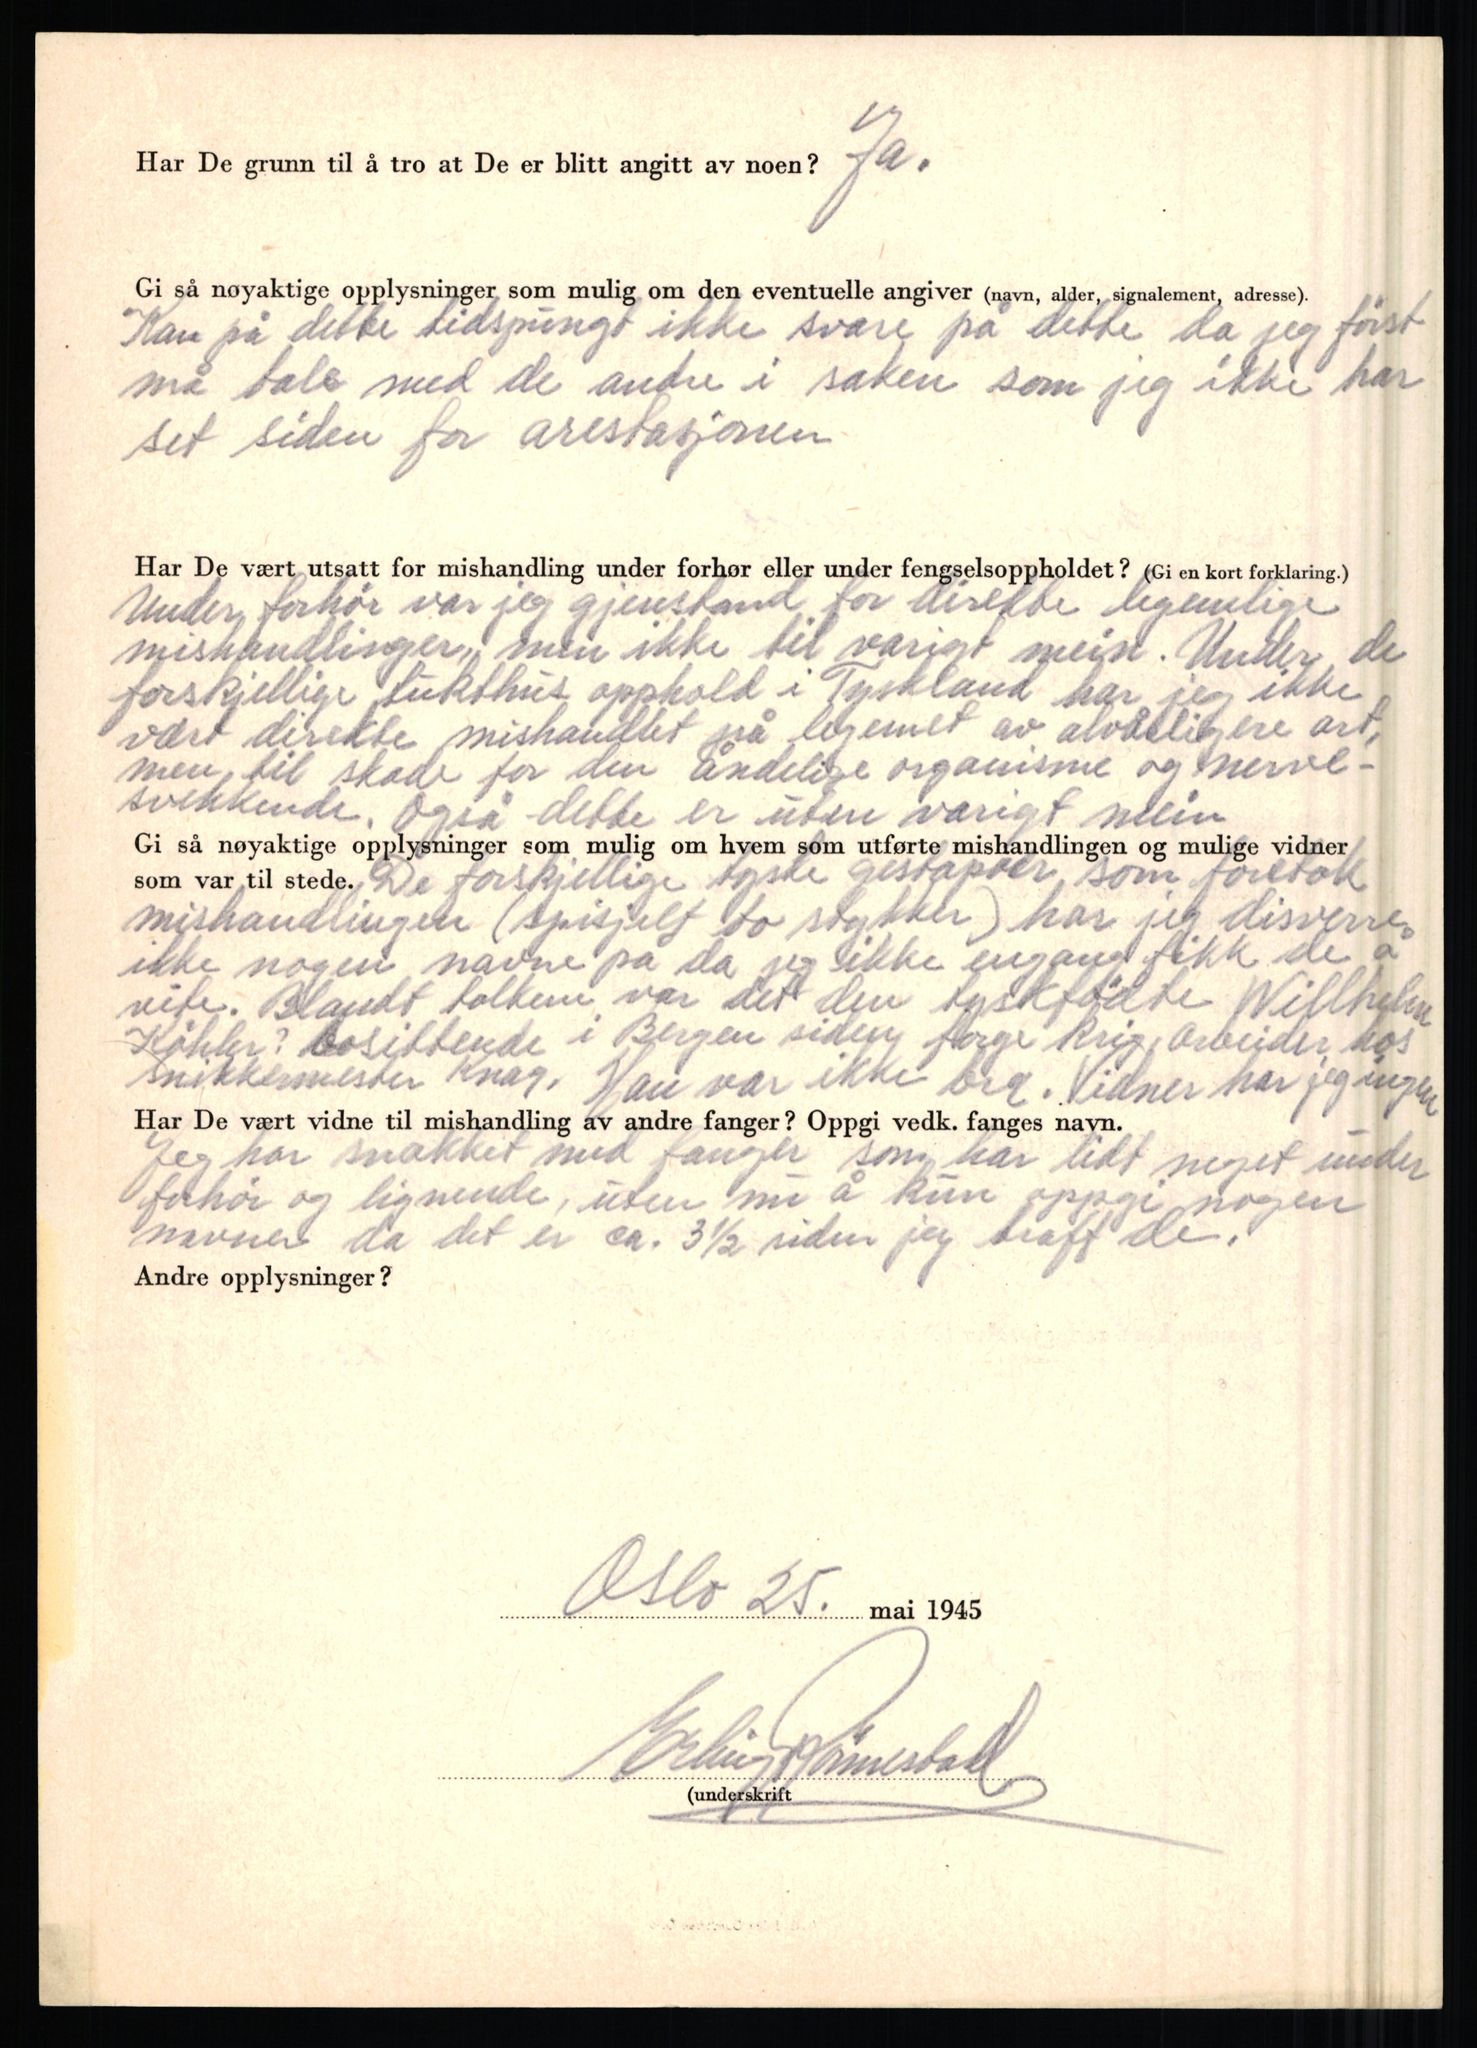 Har De grunn til å tro at De er blitt angitt av noen? Ja.
Gi så nøyaktige opplysninger som mulig om den eventuelle angiver (navn, alder, signalement, adresse).
Kan på dette tidspungt ikke svare på dette da jeg först
må tale med de andre i saken som jeg ikke har
set siden for arestasjonen
Har De vært utsatt for mishandling under forhør eller under fengselsoppholdet? (Gi en kort forklaring.)
Under forhör var jeg gjenstand for direkte legemlige
mishandlinger, men ikke til varigt mein. Under de
forskjellige tukthus opphold i Tyskland har jeg ikke
vært direkte mishandlet på legemet av alvorligere art,
men til skade for den åndelige organisme og nerve-
svekkende. Også dette er uten varigt mein
Gi så nøyaktige opplysninger som mulig om hvem som utførte mishandlingen og mulige vidner
som var til stede. De forskjellige tyske gestapoer, som foretok
mishandlingen (spisjelt to stykker) har jeg disverre
ikke nogen navne på da jeg ikke engang fikk de å
vite. Blandt tolkene var det den tyskfödte Willhelm
Köhler? bosittende i Bergen siden forge krig, arbeider hos
snikkermester Knag. Han var ikke bra. Vidner har jeg ingen
Har De vært vidne til mishandling av andre fanger? Oppgi vedk. fanges navn.
Jeg har snakket med fanger som har lidt meget under
forhör og lignende, uten nu å kun oppgi nogen
navner da det er ca. 3½ siden jeg traff de.
Andre opplysninger?
Oslo 25. mai 1945
Erling Rönnestad
(underskrift